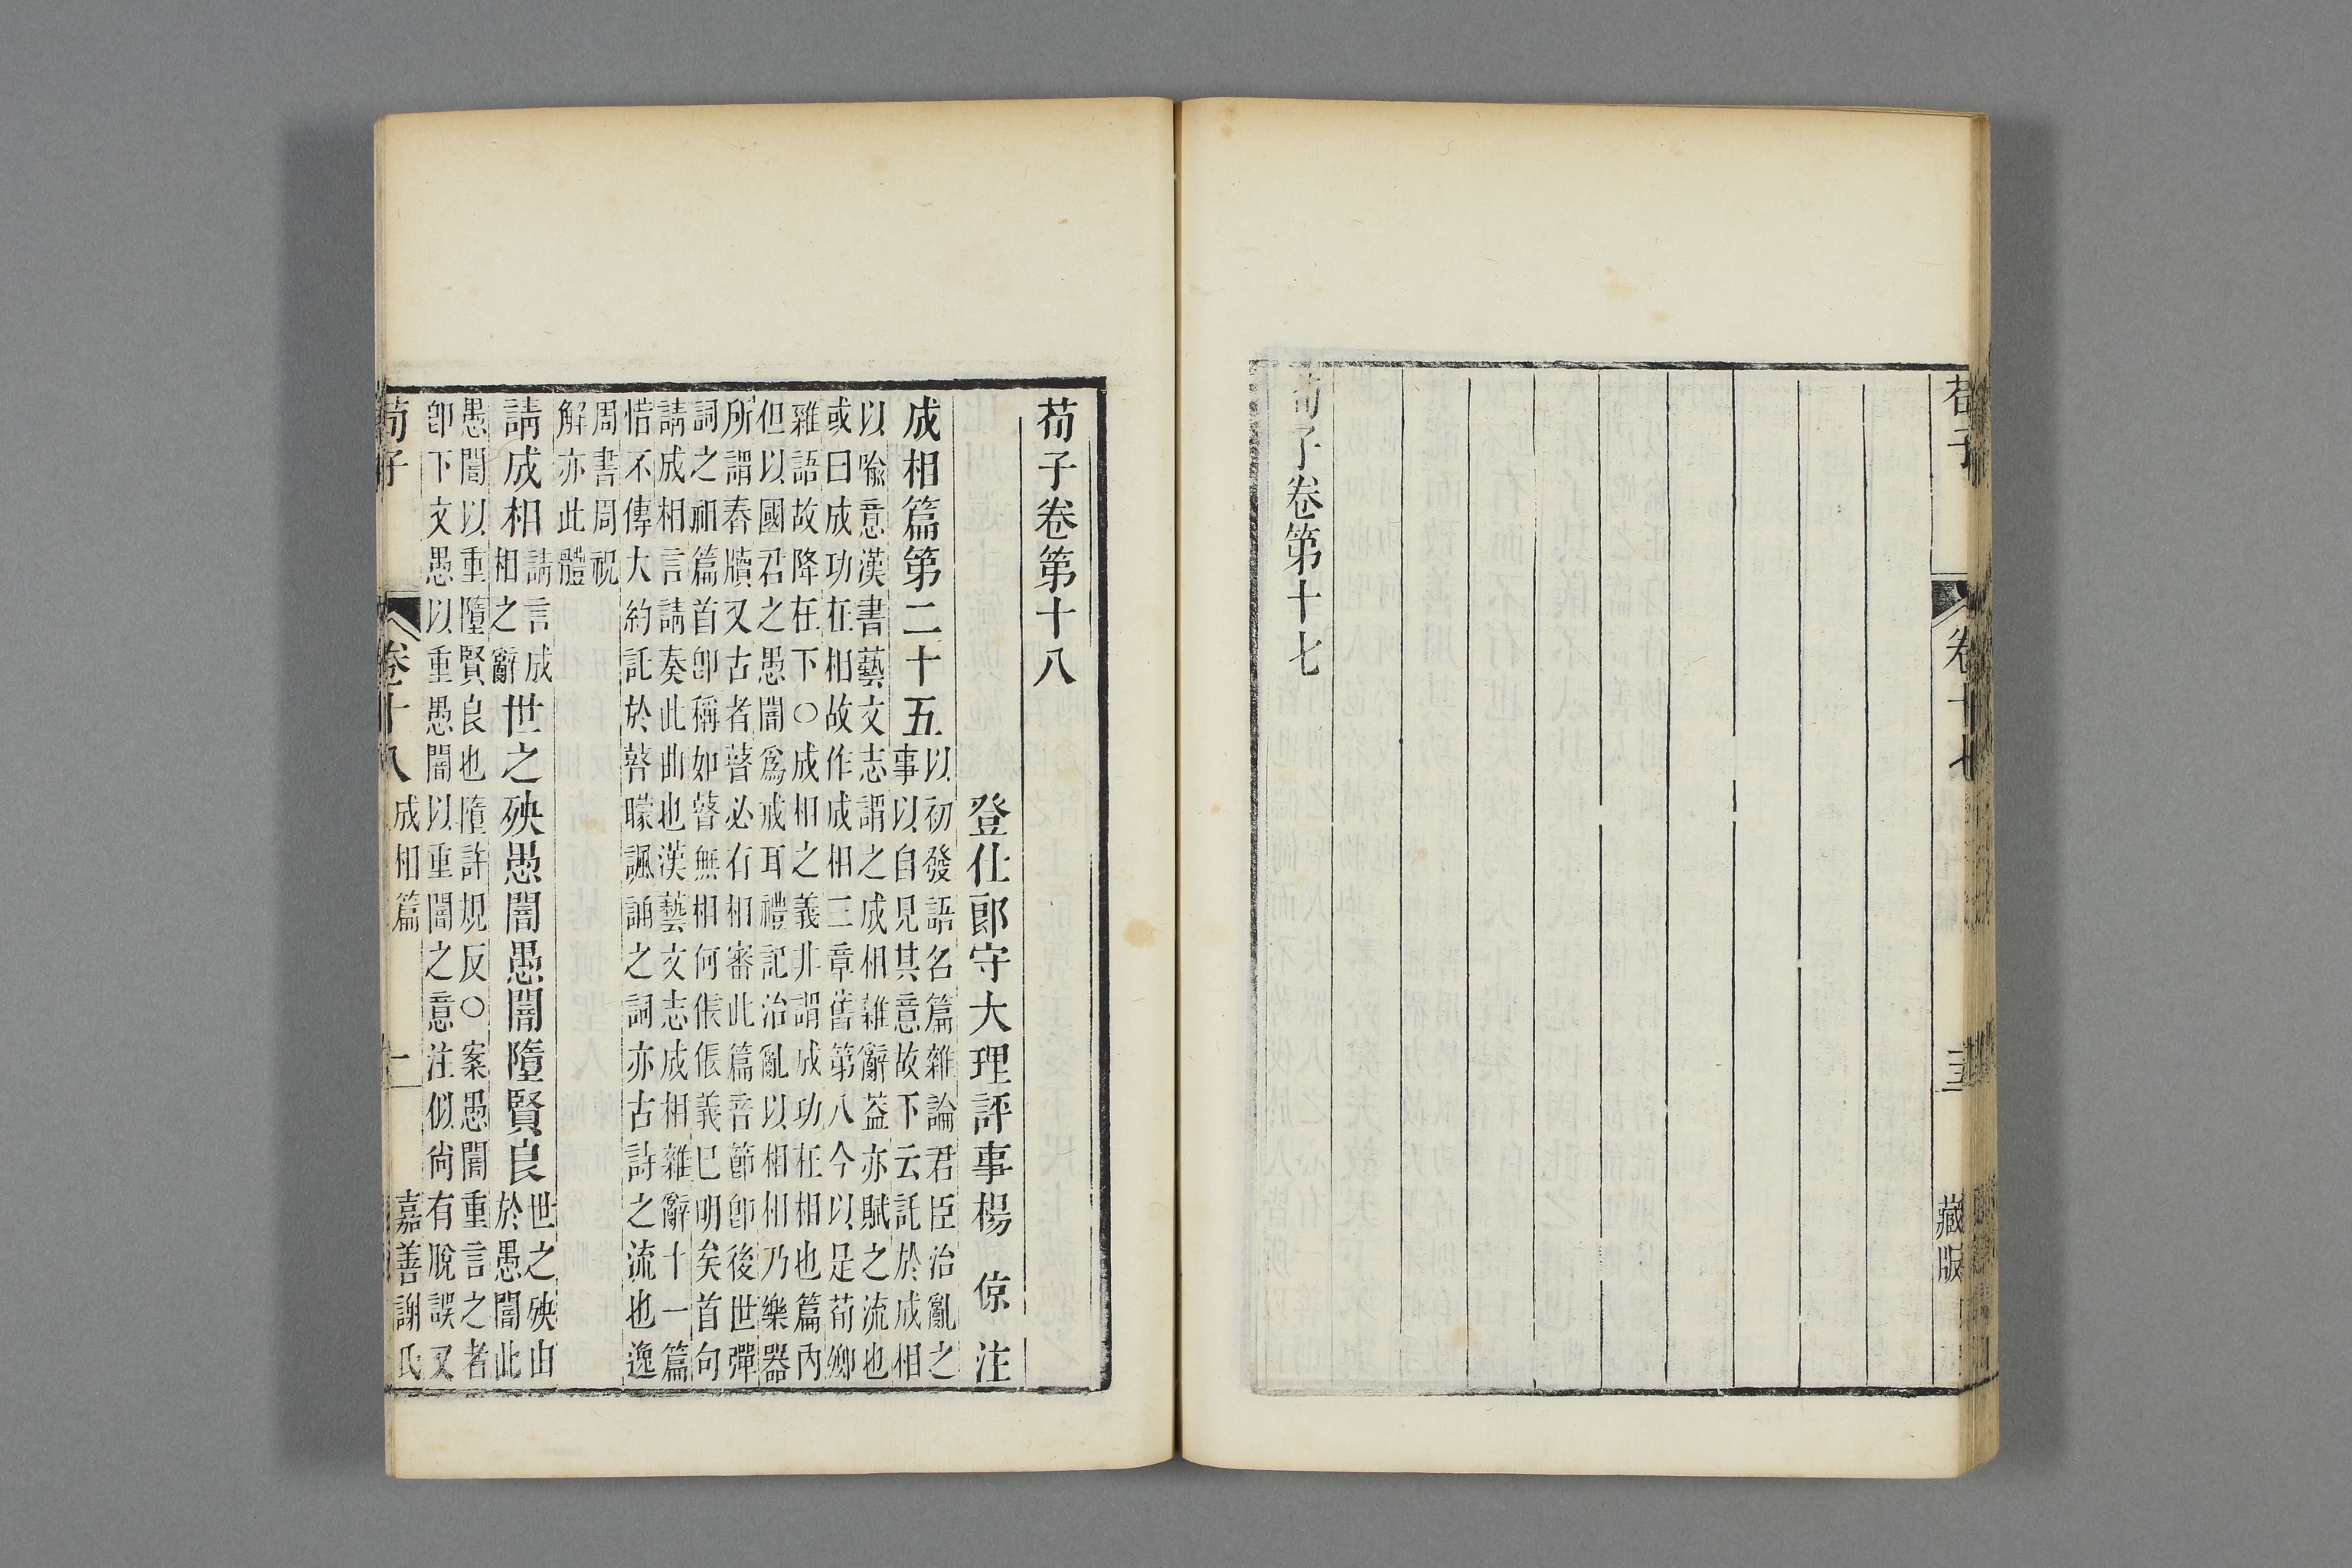 荀子 卷十七 藏版
荀子卷第十七
荀子卷第十八
登仕郎守大理評事楊 倞 注
成相篇第二十五 以初發語名篇雜論君臣治亂之
事以自見其意故下云託於成相
以喻意漢書藝文志謂之成相雜辭葢亦賦之流也
或曰成功在相故作成相三章舊第八今以是荀卿
雜語故降在下○成相之義非謂成功在相也篇內
但以國君之愚闇爲戒耳禮記治亂以相相乃樂器
所謂舂牘又古者瞽必有相審此篇音節卽後世彈
詞之祖篇首卽稱如瞽無相何倀倀義已明矣首句
請成相言請奏此曲也漢藝文志成相雜辭十一篇
惜不傳大約託於瞽矇諷誦之詞亦古詩之流也逸
周書周祝
解亦此體
請成相 請言成
相之辭 世之殃愚闇愚闇墮賢良 世之殃由
於愚闇此
愚闇以重墮賢良也墮許規反○案愚闇重言之者
卽下文愚以重愚闇以重闇之意注似尚有脫誤又
荀子 卷十八 成相篇 一 嘉善謝氏